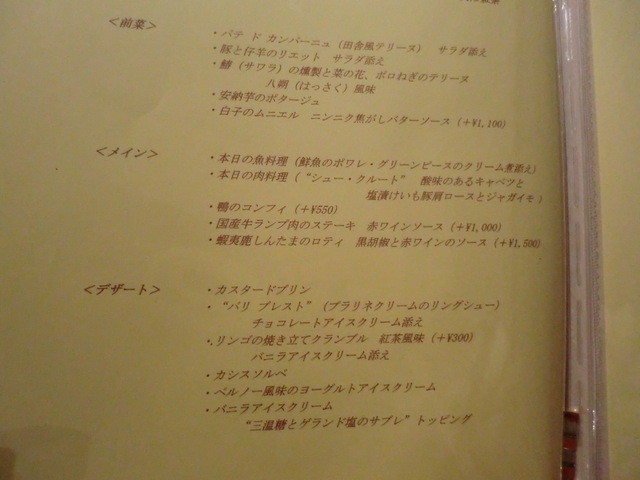 <前菜>
・パテ ド カンパーニュ（田舎風テリーヌ） サラダ添え
・豚と仔羊のリエット サラダ添え
・鰆（サワラ）の燻製と菜の花、ポロねぎのテリーヌ
八朔（はっさく）風味
・安納芋のポタージュ
・白子のムニエル ニンニク焦がしバターソース（＋¥1,100）
<メイン>
・本日の魚料理（鮮魚のポワレ・グリーンピースのクリーム煮添え）
・本日の肉料理（“シュー・クルート” 酸味のあるキャベツと
塩漬けいも豚肩ロースとジャガイモ）
・鴨のコンフィ（＋¥550）
・国産牛ランプ肉のステーキ 赤ワインソース（＋¥1,000）
・蝦夷鹿しんたまのロティ 黒胡椒と赤ワインのソース（＋¥1,500）
<デザート>
・カスタードプリン
・“パリ ブレスト”（プラリネクリームのリングシュー）
チョコレートアイスクリーム添え
・リンゴの焼き立てクランブル 紅茶風味（＋¥300）
バニラアイスクリーム添え
・カシスソルベ
・ペルノー風味のヨーグルトアイスクリーム
・バニラアイスクリーム
“三温糖とゲランド塩のサブレ”トッピング